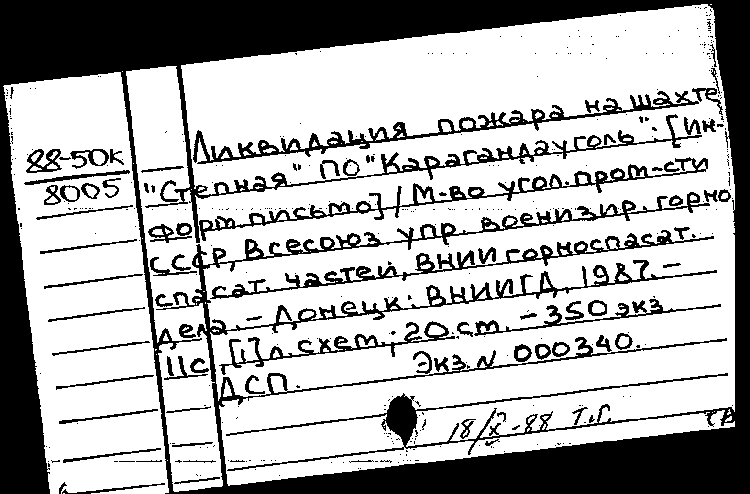 88-50к
8005
Ликвидация пожара на шахте
"Степная" ПО "Карагандауголь": [Ин-
форм. письмо] / М-во угол. пром-сти
СССР, Всесоюз упр. военизир. горно
спасат. частей, ВНИИ горноспасат.
дела. – Донецк: ВНИИГД, 1987. –
11с, [1] л. схем.; 20 см. – 350 экз.
ДСП. Экз. N 000340.
18/X-88 Т.Г.